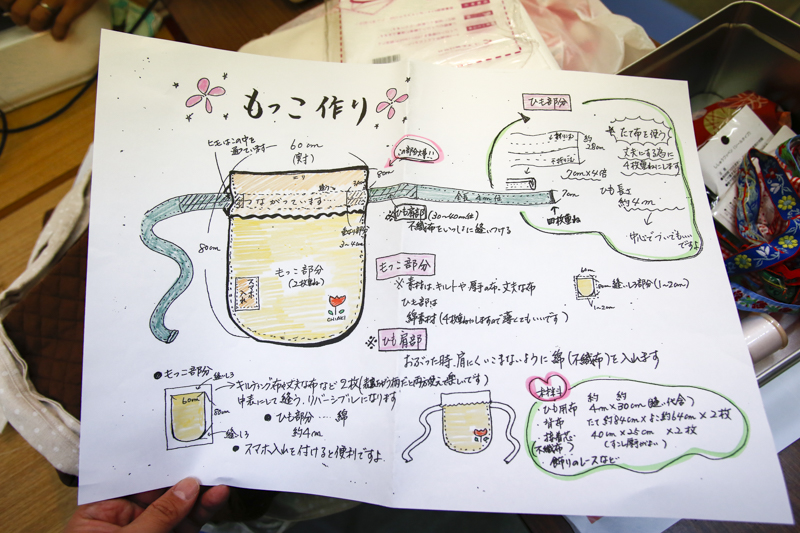 もっこ作り
ヒモはこの中を
通っています
60cm
(実寸)
この部分大事!!
8cm
つながっています
80cm
3〜4cm
もっこ部分
(2枚重ね)
スマホ入れ
ひも肩部 (30〜40cm位)
不織布をいっしょに縫いつける
全長4m位
7cm
四枚重ね
ひも部分
約28cm
7cm×4倍
たて布を使う
丈夫にする為に
4枚重ねにします
ひも長さ
約4m
中心でつないでもいい
ですよ
もっこ部分
※素材は、キルトや厚手の布、丈夫な布
ひも部は
綿素材(4枚重ねにしますので薄くてもいいです)
60cm
80cm
縫いしろ部分(1〜2cm)
1〜2cm
※ひも肩部
おぶった時、肩にくいこまないように綿(不織布)を入れます
●もっこ部分
縫いしろ
60cm
80cm
縫いしろ
キルティング布や丈夫な布など2枚
中表にして縫う、リバーシブルになります
●ひも部分……綿
約4m
●スマホ入れを付けると便利ですよ
材料
約 約
・ひも用布 4m×30cm
・背布
・接着芯 40cm×25cm ×2枚
(不織布)
・飾りのレースなど